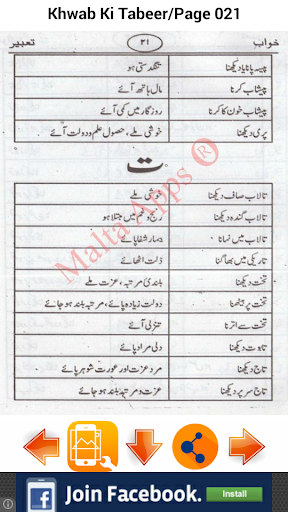 Khwab Ki Tabeer/Page 021
خواب ۲۱ تعبیر
پیسہ پانا یا دیکھنا تنگدستی ہو
پیشاب کرنا مال ہاتھ آئے
پیشاب خون کا کرنا روزگار میں کمی آئے
پری دیکھنا خوشی ملے، حصول علم و دولت آئے
ت
تالاب صاف دیکھنا خوشی ملے
تالاب گندہ دیکھنا رنج و غم میں مبتلا ہو
تالاب میں نہانا بیمار شفا پائے
تاریکی میں بھاگنا ذلت اٹھائے
تخت دیکھنا بلندی مرتبہ، عزت ملے
تخت پر بیٹھنا دولت زیادہ پائے، مرتبہ بلند ہو جائے
تخت سے اترنا تنزلی آئے
تابوت دیکھنا دلی مراد پائے
تاج دیکھنا مرد عزت اور عورت شوہر پائے
تاج سر پر دیکھنا عزت و مرتبہ بلند ہو جائے
Malta Apps ®
Join Facebook.
Install